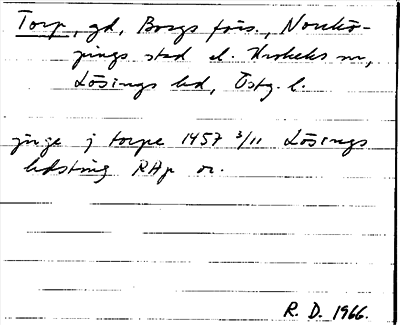 Torp, gd, Borgs förs., Norrkö-
pings stad o. Krokeks sn,
Lösings hd, Östg. l.
jönge j torpe 1457 3/11 Lösings
hdsting RAp or.
R. D. 1966.